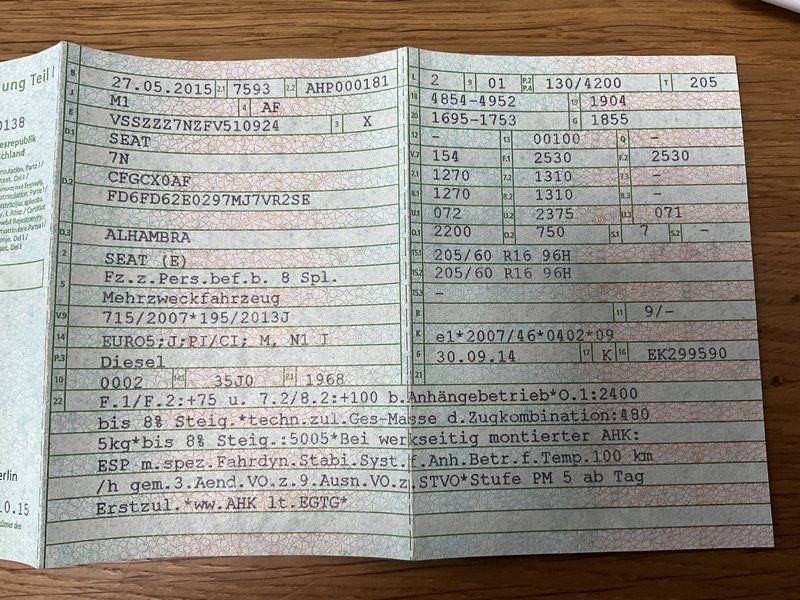 ung Teil I
0138
esrepublik
schland
B 27.05.2015 2.1 7593 2.2 AHP000181
J M1 4 AF
E VSSZZZ7NZFV510924 3 X
D.1 SEAT
7N
D.2 CFGCX0AF
FD6FD62E0297MJ7VR2SE
D.3 ALHAMBRA
2 SEAT (E)
5 Fz.z.Pers.bef.b. 8 Spl.
Mehrzweckfahrzeug
V.9 715/2007*195/2013J
14 EURO5;J;PI/CI; M, N1 I
P.3 Diesel
10 0002 14.1 35J0 P.1 1968
L 2 9 01 P.2 P.4 130/4200 T 205
18 4854-4952 19 1904
20 1695-1753 G 1855
12 - 13 00100 Q -
V.7 154 F.1 2530 F.2 2530
7.1 1270 7.2 1310 7.3 -
8.1 1270 8.2 1310 8.3 -
U.1 072 U.2 2375 U.3 071
O.1 2200 O.2 750 S.1 7 S.2 -
15.1 205/60 R16 96H
15.2 205/60 R16 96H
15.3 -
R 11 9/-
K e1*2007/46*0402*09
6 30.09.14 17 K 16 EK299590
21
22 F.1/F.2:+75 u. 7.2/8.2:+100 b.Anhängebetrieb*O.1:2400
bis 8% Steig.*techn.zul.Ges-Masse d.Zugkombination:480
5kg*bis 8% Steig.:5005*Bei werkseitig montierter AHK:
ESP m.spez.Fahrdyn.Stabi.Syst.f.Anh.Betr.f.Temp.100 km
/h gem.3.Aend.VO.z.9.Ausn.VO.z.STVO*Stufe PM 5 ab Tag
Erstzul.*ww.AHK lt.EGTG*
erlin
.10.15